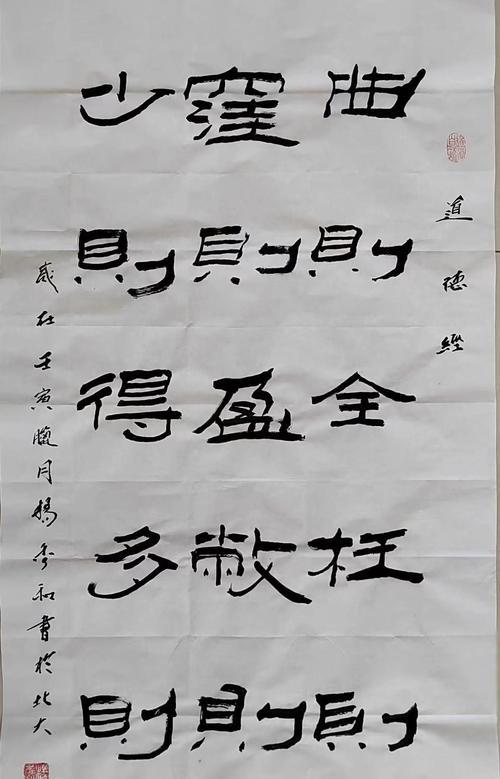 道德經
曲則全枉則
窪則盈敝則
少則得多則
歲在壬寅臘月楊和書於北大